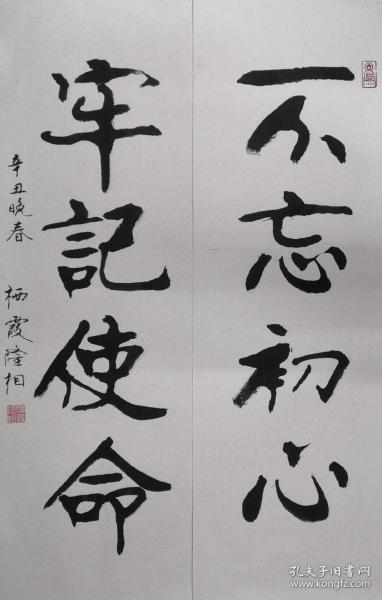 不忘初心
牢記使命
辛丑晚春 栖霞隆相
孔夫子旧书网